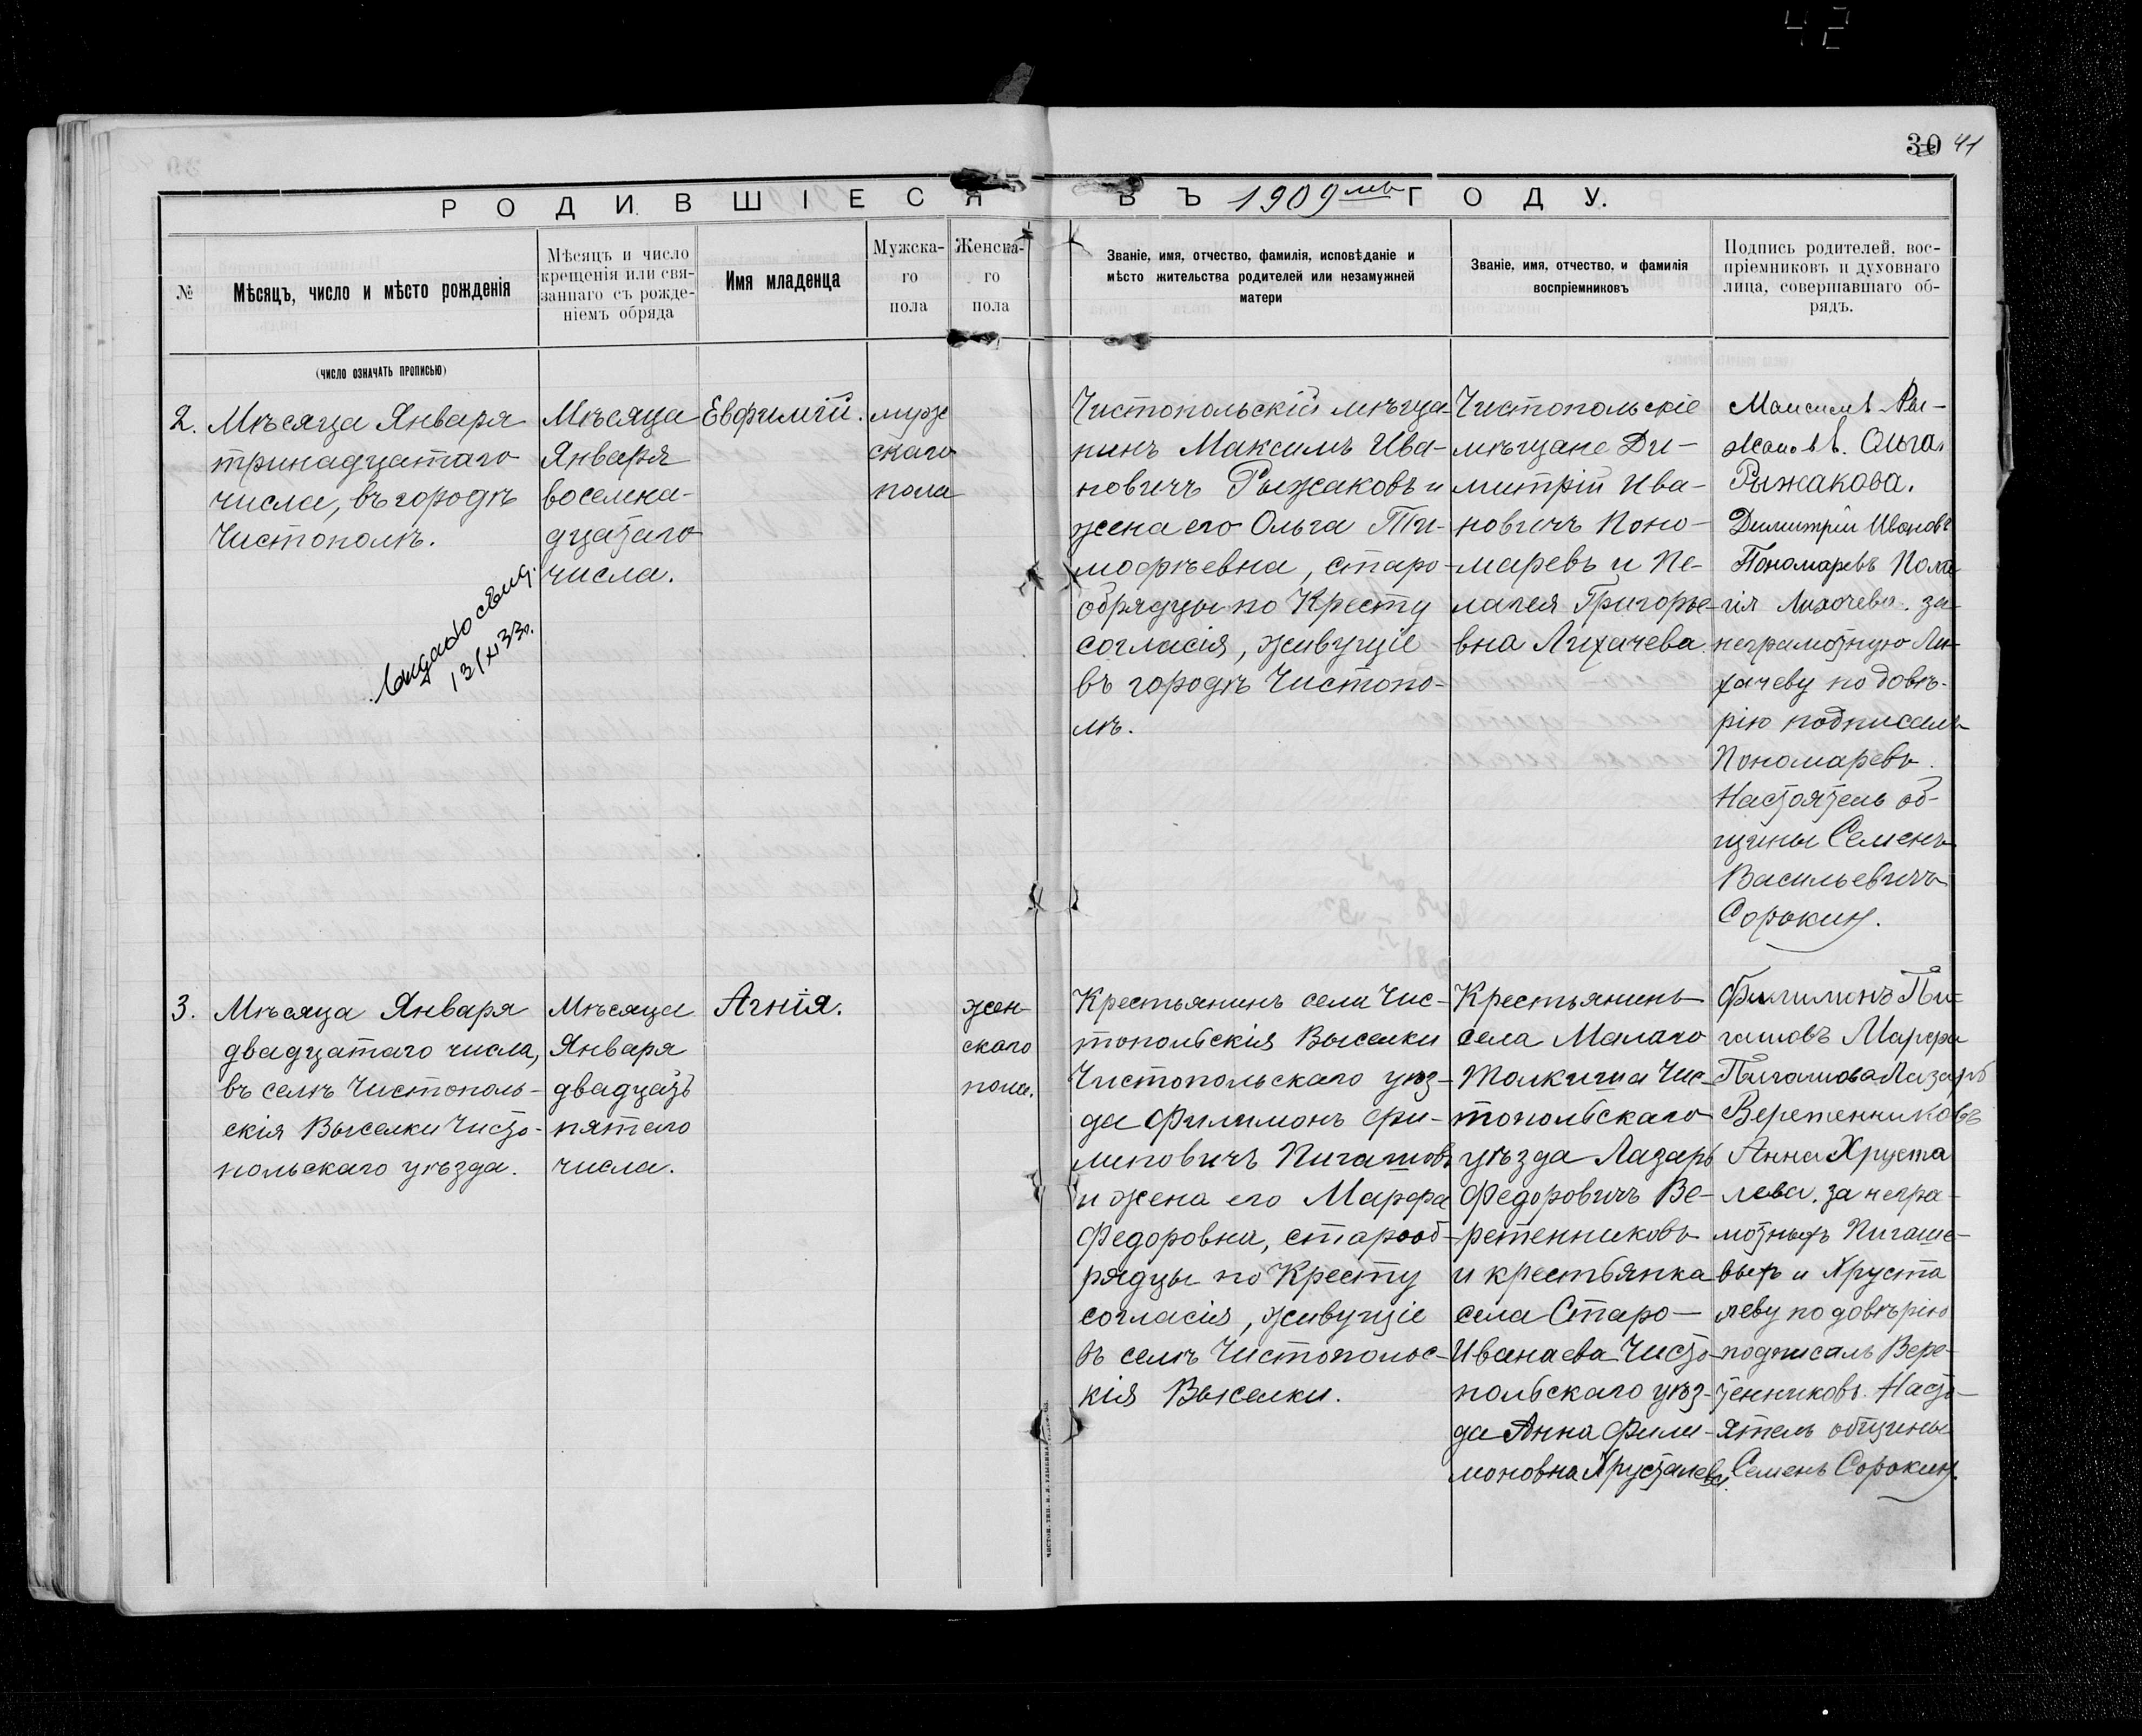 42
30 41
РОДИВШІЕСЯ ВЪ 1909мъ ГОДУ.
№
Мѣсяцъ, число и мѣсто рожденія
(число означать прописью)
Мѣсяцъ и число
крещенія или свя-
заннаго съ рожде-
ніемъ обряда
Имя младенца
Мужска-
го
пола
Женска-
го
пола
Званіе, имя, отчество, фамилія, исповѣданіе и
мѣсто жительства родителей или незамужней
матери
Званіе, имя, отчество, и фамилія
воспріемниковъ
Подпись родителей, вос-
пріемниковъ и духовнаго
лица, совершавшаго об-
рядъ.
2.
Мѣсяца Января
тринадцатаго
числа, въ городѣ
Чистополѣ.
13/XI 33г.
Мѣсяца
Января
восемна-
дцатаго
числа.
Евфимій.
муж
скаго
пола
Чистопольскій мѣща-
нинъ Максимъ Ива-
новичъ Рыжаковъ и
жена его Ольга Ти-
мофѣевна, старо-
обрядцы по Кресту
согласія, живущіе
въ городѣ Чистопо-
лѣ.
Чистопольскіе
мѣщане Ди-
митрій Ива-
новичъ Поно-
маревъ и Пе-
лагея Григорье-
вна Лихачева
Максимъ Ры-
жаковъ. Ольга
Рыжакова.
Димитрій Ивановъ
Пономаревъ Пела
гія Лихачева. за
неграмотную Ли-
хачеву по довѣ-
рію подписалъ
Пономаревъ.
Настоятель об-
щины Семенъ
Васильевичъ
Сорокин.
3.
Мѣсяца Января
двадцатаго числа,
въ селѣ Чистополь-
скія Выселки Чисто-
польскаго уѣзда.
Мѣсяца
Января
двадцать
пятаго
числа.
Агнія.
жен-
скаго
пола.
Крестьянинъ села Чис-
топольскія Выселки
Чистопольскаго уѣз-
да Филимонъ Фи-
липовичъ Пигашовъ
и жена его Марфа
Федоровна, старооб-
рядцы по Кресту
согласія, живущіе
въ селѣ Чистопольс-
кія Выселки.
Крестьянинъ
села Малаго
Толкиша Чис-
топольскаго
уѣзда Лазарь
Федоровичъ Ве-
ретенниковъ
и крестьянка
села Старо-
Иванаева Чисто-
польскаго уѣз-
да Анна Фили-
моновна Хрусталева.
Филимонъ Пи-
гашовъ Марфа
Пигашова Лазарь
Веретенниковъ
Анна Хруста
лева. за негра-
мотныхъ Пигаше-
выхъ и Хруста
леву по довѣрію
подписалъ Вере-
тенниковъ. Насто-
ятель общины
Семенъ Сорокин.